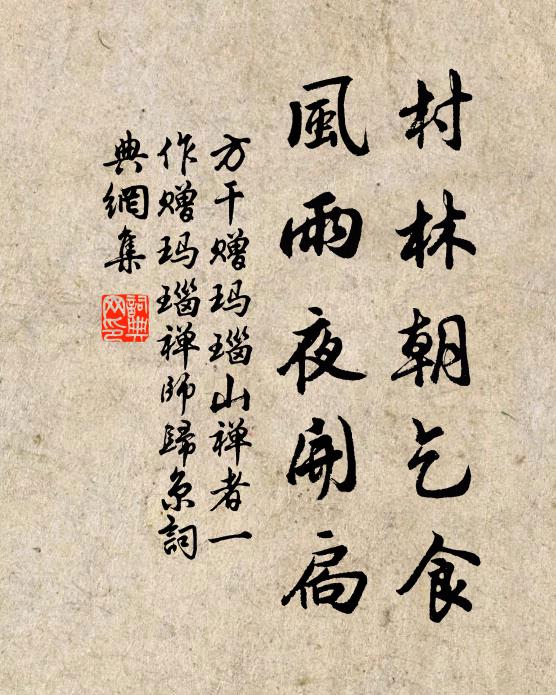 村林朝乞食
風雨夜開扃
方干赠玛瑙山禅者一
作赠玛瑙禅师歸京詞
典網集
詞典
网印